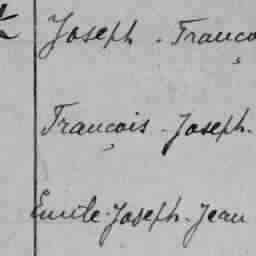 Joseph - Franço
François - Joseph.
Emile - Joseph - Jean